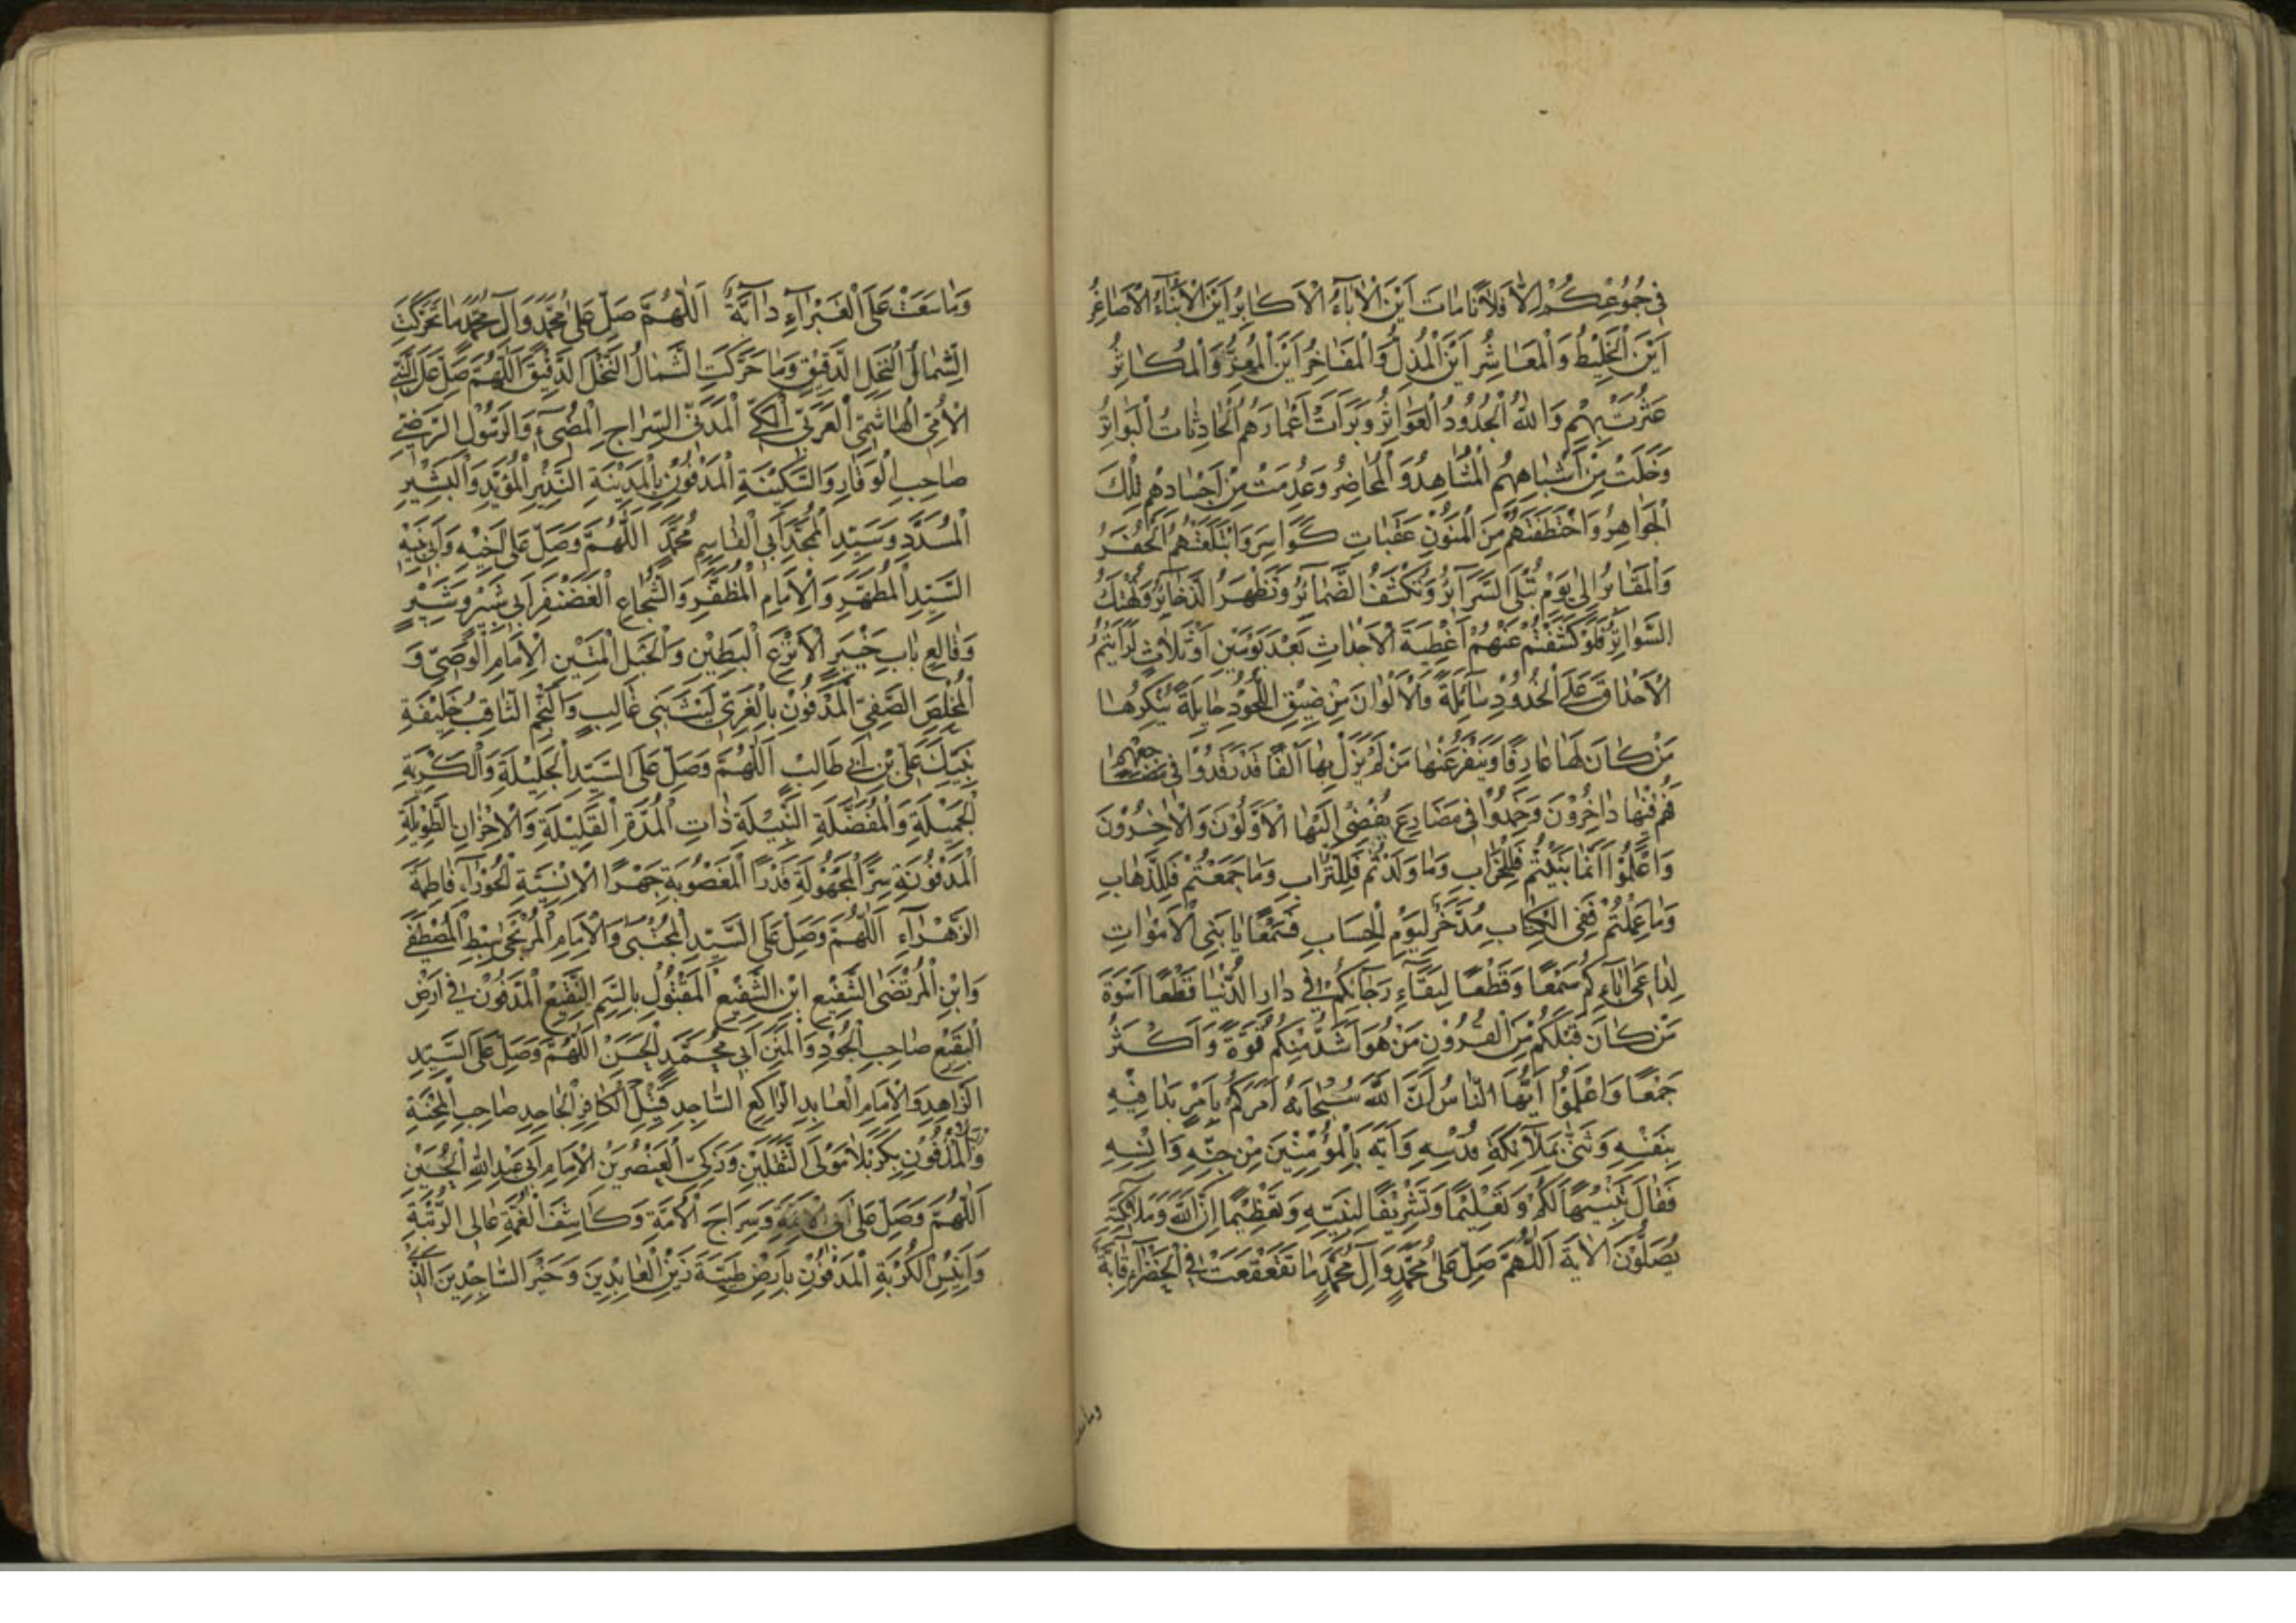 فِي جُمُوعِكُمْ اِلَّا فُلَانًا مَاتَ اَيْنَ الْاٰبَاءُ الْاَكَابِرُ اَيْنَ الْاَبْنَاءُ الْاَصَاغِرُ
اَيْنَ الْخَلِيْطُ وَالْمُعَاشِرُ اَيْنَ الْمُذِلُّ وَالْمَفَاخِرُ اَيْنَ الْمُعِزُّ وَالْمُكَاثِرُ
عَثُرَتْ بِهِمْ وَاللهِ الْجُدُوْدُ الْعَوَاثِرُ وَبَرَاَتْ اَعْمَارَهُمُ الْحَادِثَاتُ الْبَوَاتِرُ
وَخَلَتْ مِنْ اَشْبَاهِهِمُ الْمَشَاهِدُ وَالْمَحَاضِرُ وَعُدِمَتْ مِنْ اَجْسَادِهِمْ تِلْكَ
الْجَوَاهِرُ وَاخْتَطَفَتْهُمْ مِنَ الْمَنُوْنِ عَقَبَاتٌ كَوَاسِرَ وَابْتَلَعَتْهُمُ الْحُفَرُ
وَالْمَقَابِرُ اِلٰى يَوْمِ تُبْلَى السَّرَآئِرُ وَتُكْشَفُ الضَّمَآئِرُ وَتَظْهَرُ الذَّخَآئِرُ وَتُهْتَكُ
السَّوَاتِرُ فَلَوْ كَشَفْتُمْ عَنْهُمْ اَغْطِيَةَ الْاَجْدَاثِ بَعْدَ يَوْمَيْنِ اَوْ ثَلَاثٍ لَرَاَيْتُمُ
الْاَحْدَاقَ عَلَى الْخُدُوْدِ سَآئِلَةً وَالْاَلْوَانَ مِنْ ضِيْقِ اللُّحُوْدِ حَايِلَةً يُنْكِرُهَا
مَنْ كَانَ لَهَا عَارِفًا وَيَنْفِرُ عَنْهَا مَنْ لَمْ يَزَلْ بِهَا اٰلِفًا قَدْ رَقَدُوْا فِي
فَهُمْ فِيْهَا دَاخِرُوْنَ وَخَمَدُوْا فِي مَصَارِعَ يُفْضِي اِلَيْهَا الْاَوَّلُوْنَ وَالْاٰخِرُوْنَ
وَاعْلَمُوْا اَنَّمَا بَنَيْتُمْ فَلِلْخَرَابِ وَمَا وَلَدْتُمْ فَلِلتُّرَابِ وَمَا جَمَعْتُمْ فَلِلذَّهَابِ
وَمَا عَمِلْتُمْ فَفِي الْكِتَابِ مُدَّخَرٌ لِيَوْمِ الْحِسَابِ فَسَمْعًا يَا بَنِي الْاَمْوَاتِ
لِدَاعِي اٰبَآءِكُمْ سَمْعًا وَقَطْعًا لِبَقَآءِ رَجَآئِكُمْ فِي دَارِ الدُّنْيَا قَطْعًا اُسْوَةَ
مَنْ كَانَ قَبْلَكُمْ مِنَ الْقُرُوْنِ مَنْ هُوَ اَشَدُّ مِنْكُمْ قُوَّةً وَاَكْثَرُ
جَمْعًا وَاعْلَمُوْا اَيُّهَا النَّاسُ اَنَّ اللهَ سُبْحَانَهُ اَمَرَكُمْ بِاَمْرٍ بَدَا فِيْهِ
بِنَفْسِهِ وَثَنّٰى بِمَلَآئِكَةِ قُدْسِهِ وَاَيَّهَ بِالْمُؤْمِنِيْنَ مِنْ جِنِّهِ وَاِنْسِهِ
فَقَالَ تَنْبِيْهًا لَكُمْ وَتَعْلِيْمًا وَتَشْرِيْفًا لِنَبِيِّهِ وَتَعْظِيْمًا اِنَّ اللهَ وَمَلَآئِكَتَهُ
يُصَلُّوْنَ الْاٰيَةَ اَللّٰهُمَّ صَلِّ عَلٰى مُحَمَّدٍ وَاٰلِ مُحَمَّدٍ مَا تَقَعْقَعَتْ فِي الْخَضْرَآءِ
وما سعت
وَمَا سَعَتْ عَلَى الْغَبْرَآءِ دَآبَّةٌ اَللّٰهُمَّ صَلِّ عَلٰى مُحَمَّدٍ وَاٰلِ مُحَمَّدٍ مَا تَحَرَّكَتِ
الشِّمَالُ النَّخْلَ الدَّقِيْقَ وَمَا حَرَّكَتِ الشِّمَالُ النَّخْلَ الدَّقِيْقَ اَللّٰهُمَّ صَلِّ عَلَى النَّبِيِّ
الْاُمِّيِّ الْهَاشِمِيِّ الْعَرَبِيِّ الْمَكِّيِّ الْمَدَنِيِّ السِّرَاجِ الْمُضِيْءِ وَالرَّسُوْلِ الرَّضِيِّ
صَاحِبِ الْوَقَارِ وَالسَّكِيْنَةِ الْمَدْفُوْنِ بِالْمَدِيْنَةِ النَّذِيْرِ الْمُؤَيَّدِ وَالْبَشِيْرِ
الْمُسَدَّدِ وَسَيِّدِ الْمُمَجَّدِ اَبِي الْقَاسِمِ مُحَمَّدٍ اَللّٰهُمَّ وَصَلِّ عَلٰى اَخِيْهِ وَاَبِي بَنِيْهِ
السَّيِّدِ الْمُطَهَّرِ وَالْاِمَامِ الْمُظَفَّرِ وَالشُّجَاعِ الْغَضَنْفَرِ اَبِي شَبَّرٍ وَشَبِيْرٍ
وَقَالِعِ بَابِ خَيْبَرٍ الْاَنْزَعِ الْبَطِيْنِ وَالْحَبْلِ الْمَتِيْنِ الْاِمَامِ الْوَصِيِّ وَ
الْمُخْلِصِ الصَّفِيِّ الْمَدْفُوْنِ بِالْغَرِيِّ لَيْثِ بَنِي غَالِبٍ وَالنَّجْمِ الثَّاقِبِ خَلِيْفَةِ
نَبِيِّكَ عَلِيِّ بْنِ اَبِي طَالِبٍ اَللّٰهُمَّ وَصَلِّ عَلَى السَّيِّدَةِ الْجَلِيْلَةِ وَالْكَرِيْمَةِ
الْجَمِيْلَةِ وَالْمُفَضَّلَةِ النَّبِيْلَةِ ذَاتِ الْمُدَّةِ الْقَلِيْلَةِ وَالْاَحْزَانِ الطَّوِيْلَةِ
الْمَدْفُوْنَةِ سِرًّا الْمَجْهُوْلَةِ قَدْرًا الْمَغْصُوْبَةِ جَهْرًا الْاِنْسِيَّةِ الْحَوْرَآءِ فَاطِمَةَ
الزَّهْرَآءِ اَللّٰهُمَّ وَصَلِّ عَلَى السَّيِّدِ الْمُجْتَبٰى وَالْاِمَامِ الْمُرْتَجٰى سِبْطِ الْمُصْطَفٰى
وَابْنِ الْمُرْتَضَى الشَّفِيْعِ ابْنِ الشَّفِيْعِ الْمَقْتُوْلِ بِالسَّمِّ النَّقِيْعِ الْمَدْفُوْنِ فِي اَرْضِ
الْبَقِيْعِ صَاحِبِ الْجُوْدِ وَالْمِنَنِ اَبِي مُحَمَّدٍ الْحَسَنِ اَللّٰهُمَّ وَصَلِّ عَلَى السَّيِّدِ
الزَّاهِدِ وَالْاِمَامِ الْعَابِدِ الرَّاكِعِ السَّاجِدِ قَتِيْلِ الْكَافِرِ الْجَاحِدِ صَاحِبِ الْمِحْنَةِ
وَالْمَدْفُوْنِ بِكَرْبَلَا مَوْلَى الثَّقَلَيْنِ وَزَكِيِّ الْعُنْصُرَيْنِ الْاِمَامِ اَبِي عَبْدِ اللهِ الْحُسَيْنِ
اَللّٰهُمَّ وَصَلِّ عَلٰى اَبِي الْاَئِمَّةِ وَسِرَاجِ الْاُمَّةِ وَكَاشِفِ الْغُمَّةِ عَالِي الرُّتْبَةِ
وَاَنِيْسِ الْكُرْبَةِ الْمَدْفُوْنِ بِاَرْضِ طَيْبَةَ زَيْنِ الْعَابِدِيْنَ وَخَيْرِ السَّاجِدِيْنَ